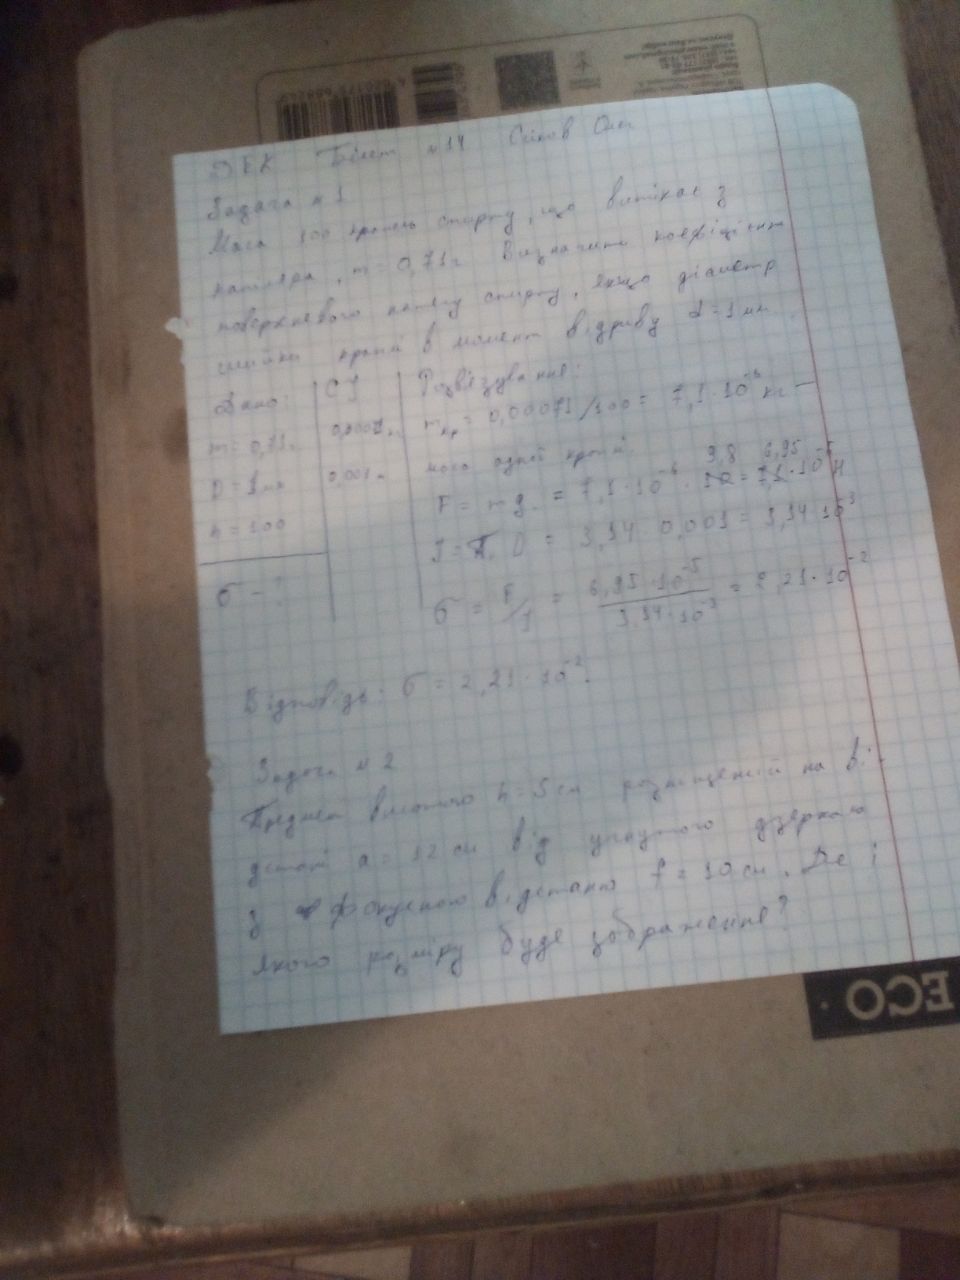 ДЕК Білет №14 Сєіков Олег
Задача №1
Маса 100 крапель спирту, що витікає з
капіляра, m = 0,71 г. Визначити коефіцієнт
поверхневого натягу спирту, якщо діаметр
шийки краплі в момент відриву d = 1 мм.
Дано: СІ Розв'язування:
m = 0,71 г 0,00071 кг mкр = 0,00071/100 = 7,1·10⁻⁶ кг –
D = 1 мм 0,001 м маса одної краплі.
n = 100 F = mg = 7,1·10⁻⁶ · 9,8 = 6,95·10⁻⁵ Н
l = π·D = 3,14 · 0,001 = 3,14·10⁻³
σ - ? σ = F/l = 6,95·10⁻⁵ / 3,14·10⁻³ = 2,21·10⁻²
Відповідь: σ = 2,21·10⁻².
Задача №2
Предмет висотою h = 5 см розміщений на від-
дстані a = 12 см від угнутого дзеркала
з фокусною відстанню f = 10 см. Де і
якого розміру буде зображення?
ECO